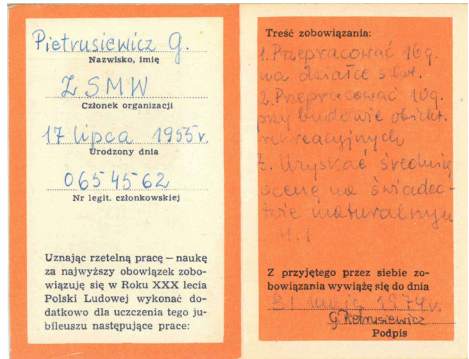 Pietrusiewicz G.
Nazwisko, imię
ZSMW
Członek organizacji
17 lipca 1955 r.
Urodzony dnia
065 45 62
Nr legit. członkowskiej
Uznając rzetelną pracę – naukę
za najwyższy obowiązek zobo-
wiązuję się w Roku XXX lecia
Polski Ludowej wykonać do-
datkowo dla uczczenia tego ju-
bileuszu następujące prace:
Treść zobowiązania:
1. Przepracować 16 g.
na działce
2. Przepracować 10 g.
przy budowie obiekt.
rekreacyjnych
Uzyskać średnią
ocenę na świadec-
twie maturalnym
4.1
Z przyjętego przez siebie zo-
bowiązania wywiążę się do dnia
31 maja 1974 r.
G Pietrusiewicz
Podpis